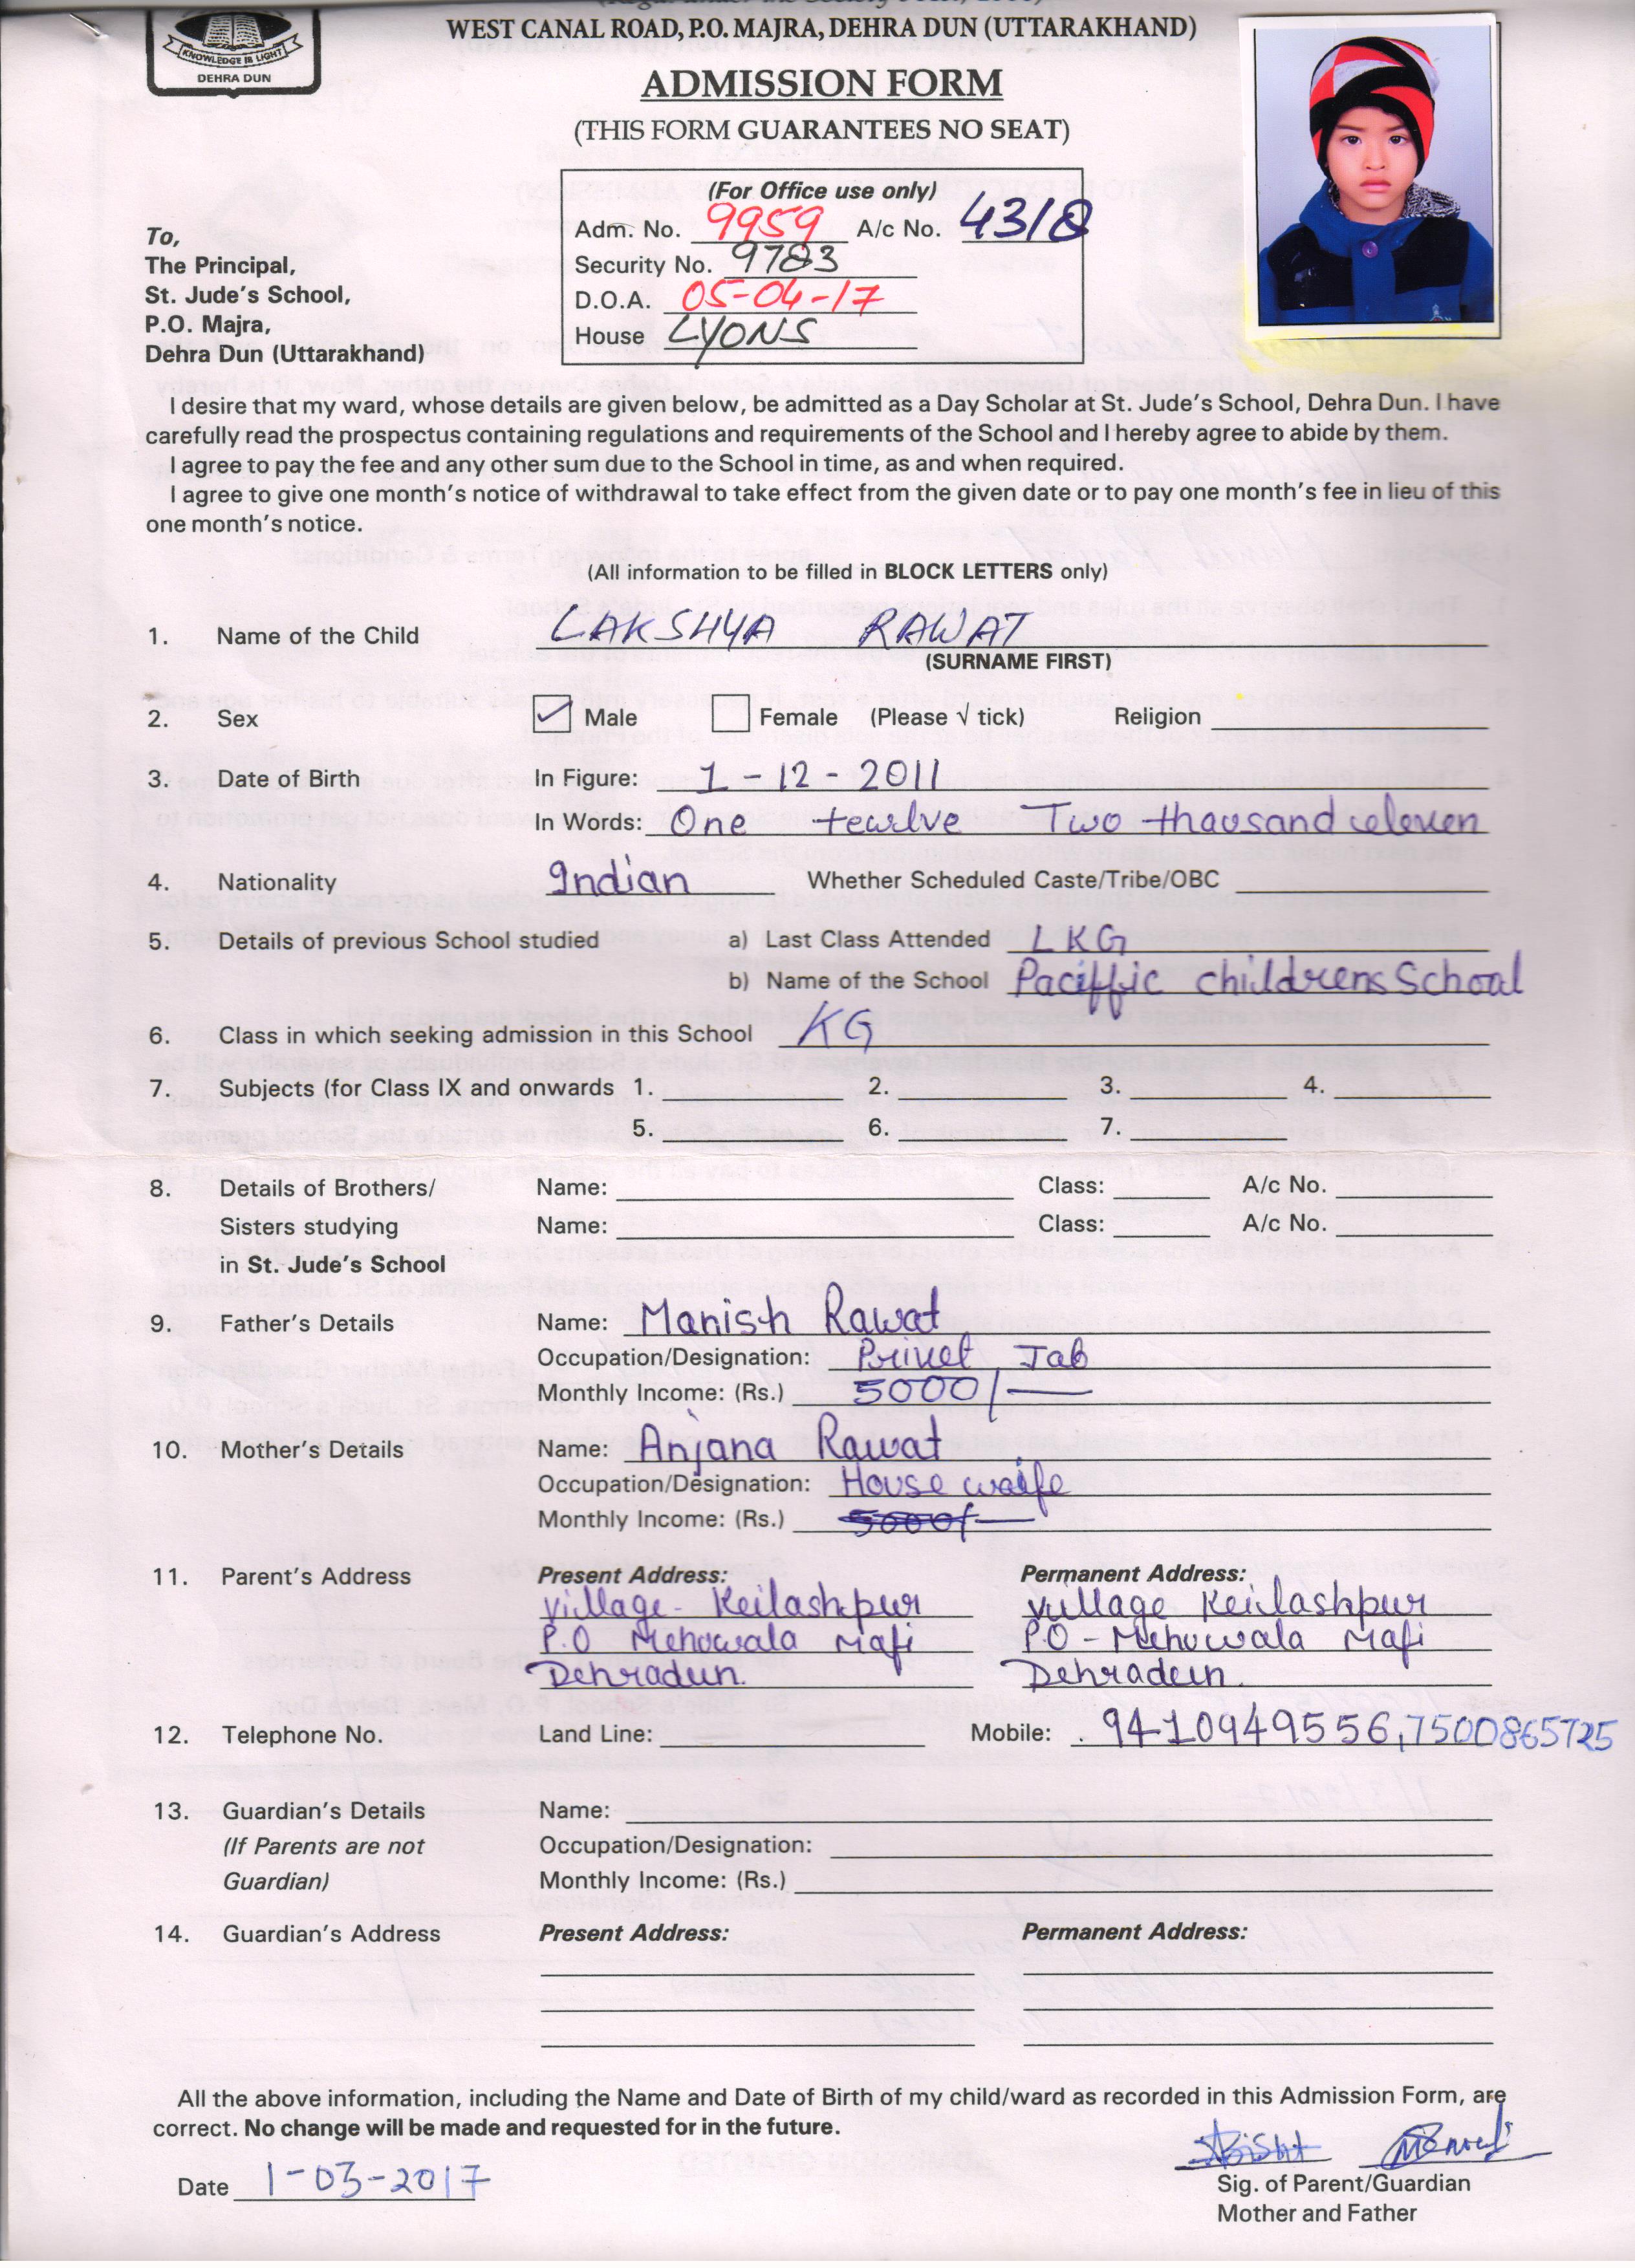 WEST CANAL ROAD, P.O. MAJRA, DEHRA DUN (UTTARAKHAND)
KNOWLEDGE IS LIGHT
DEHRA DUN
ADMISSION FORM
(THIS FORM GUARANTEES NO SEAT)
(For Office use only)
Adm. No. 9959 A/c No. 4318
Security No. 9783
D.O.A. 05-04-17
House LYONS
To,
The Principal,
St. Jude's School,
P.O. Majra,
Dehra Dun (Uttarakhand)
I desire that my ward, whose details are given below, be admitted as a Day Scholar at St. Jude's School, Dehra Dun. I have
carefully read the prospectus containing regulations and requirements of the School and I hereby agree to abide by them.
I agree to pay the fee and any other sum due to the School in time, as and when required.
I agree to give one month's notice of withdrawal to take effect from the given date or to pay one month's fee in lieu of this
one month's notice.
(All information to be filled in BLOCK LETTERS only)
1. Name of the Child LAKSHYA RAWAT
(SURNAME FIRST)
2. Sex ✓ Male Female (Please √ tick) Religion
3. Date of Birth In Figure: 1 - 12 - 2011
In Words: One tewlve Two thousand eleven
4. Nationality Indian Whether Scheduled Caste/Tribe/OBC
5. Details of previous School studied a) Last Class Attended LKG
b) Name of the School Paciffic childrens School
6. Class in which seeking admission in this School KG
7. Subjects (for Class IX and onwards 1. 2. 3. 4.
5. 6. 7.
8. Details of Brothers/ Name: Class: A/c No.
Sisters studying Name: Class: A/c No.
in St. Jude's School
9. Father's Details Name: Manish Rawat
Occupation/Designation: Privet Job
Monthly Income: (Rs.) 5000/-
10. Mother's Details Name: Anjana Rawat
Occupation/Designation: House waife
Monthly Income: (Rs.) 5000/-
11. Parent's Address Present Address: Permanent Address:
Village - Keilashpur Village Keilashpur
P.O Mehuwala Mafi P.O - Mehuwala Mafi
Dehradun. Dehradun.
12. Telephone No. Land Line: Mobile: 9410949556, 7500865725
13. Guardian's Details Name:
(If Parents are not Occupation/Designation:
Guardian) Monthly Income: (Rs.)
14. Guardian's Address Present Address: Permanent Address:
All the above information, including the Name and Date of Birth of my child/ward as recorded in this Admission Form, are
correct. No change will be made and requested for in the future.
Date 1-03-2017
Sig. of Parent/Guardian
Mother and Father